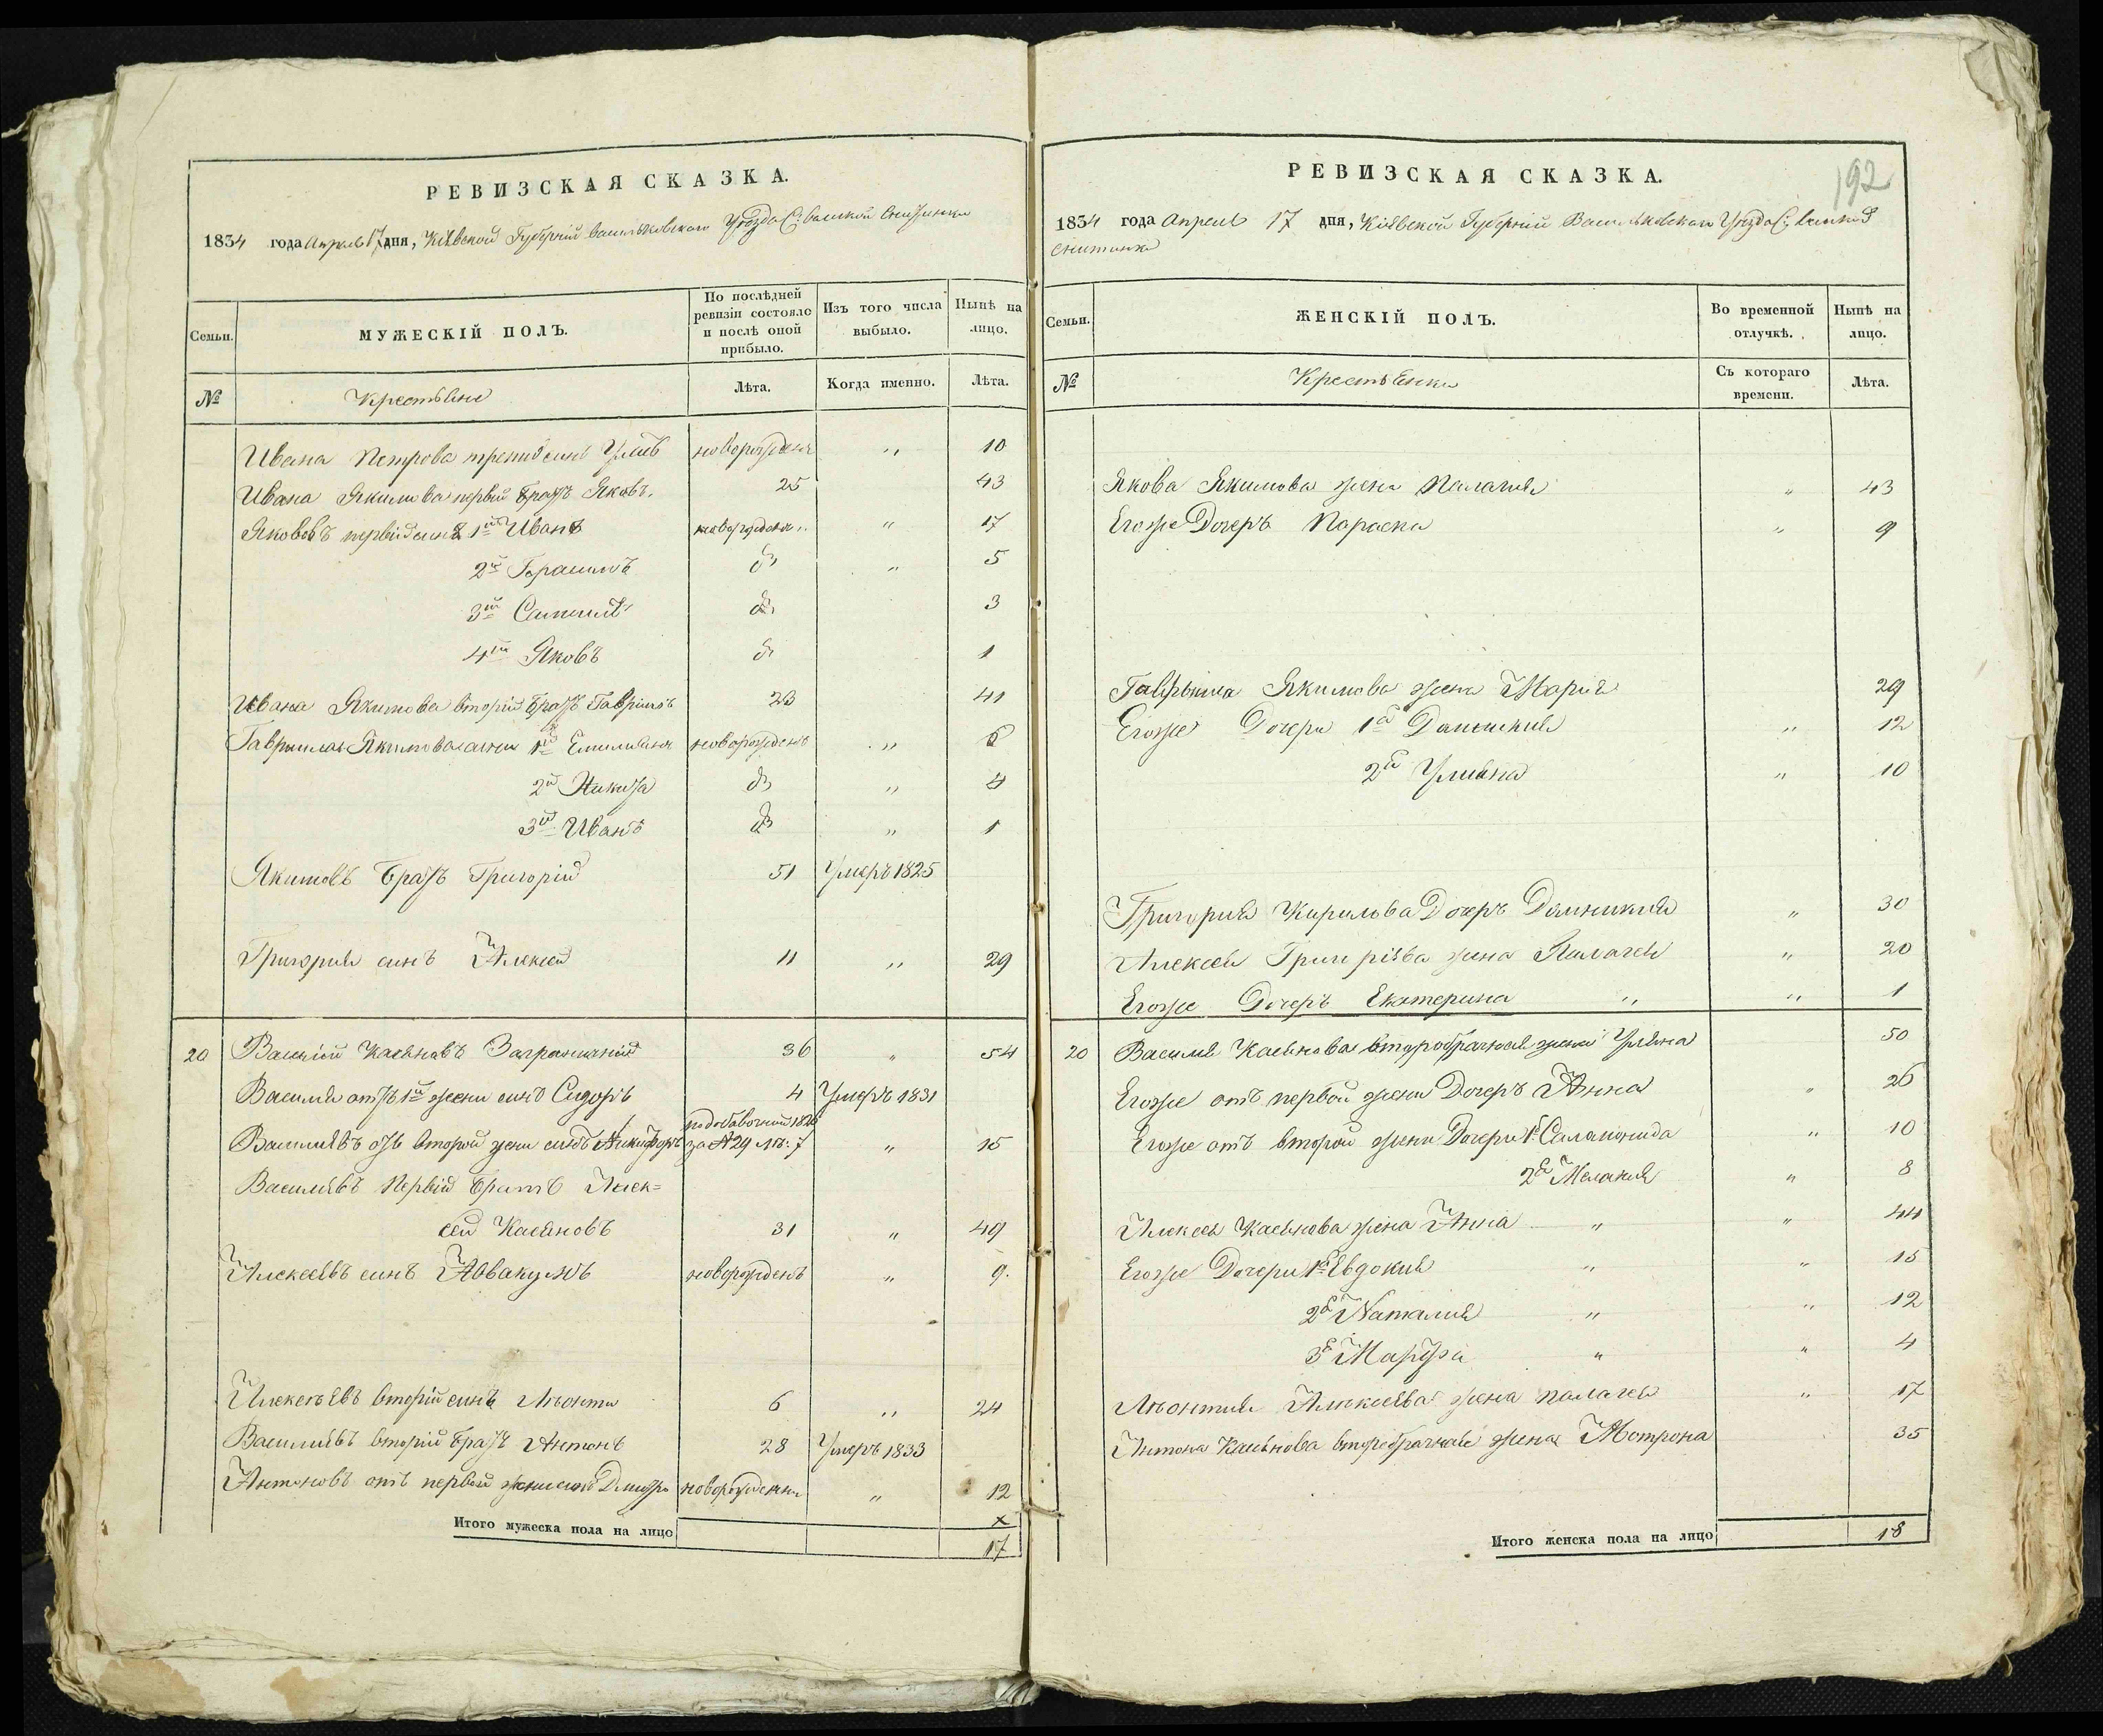 РЕВИЗСКАЯ СКАЗКА.
1834 года Апреля 17 дня, Кіевской Губерніи Васильковского Уезда С: Великой Снитинки
Семьи. МУЖЕСКІЙ ПОЛЪ. По послѣдней ревизіи состояло и послѣ оной прибыло. Изъ того числа выбыло. Нынѣ на лицо.
№ Крестьяне Лѣта. Когда именно. Лѣта.
Ивана Петрова третій синъ новорожденъ „ 10
Ивана Якимова первій братъ Яковъ. 25 43
Якововъ первій синъ 1й Иванъ новорожденъ „ 17
2й Герасимъ д „ 5
3й д 3
4й Яковъ д 1
Ивана Якимова вторій братъ Гаврішъ 23 41
Гаврыила Якимова сини 1й Емилиянъ новорожденъ „ 6
2й Никита д „ 4
3й Иванъ д „ 1
Якимовъ братъ Григорій 51 Умеръ 1825
Григория синъ Алексей 11 „ 29
20 Василій Касяновъ Заграничній 36 „ 54
Василия отъ 1й жени синъ Сидоръ 4 Умеръ 1831
Василиевъ отъ второй жени синъ Никифоръ подобавочной 1826 за № 29 лѣ: 7 „ 15
Василиевъ Первій братъ Алек=
сей Касяновъ 31 „ 49
Алексеевъ синъ Аввакумъ новорожденъ „ 9.
Алексеевъ вторій синъ Леонти 6 „ 24
Василиевъ вторій братъ Антонъ 28 Умеръ 1833
Антоновъ отъ первой жени синъ Дмитро новорожденни „ 12
Итого мужеска пола на лицо × 17
192
РЕВИЗСКАЯ СКАЗКА.
1834 года Апреля 17 дня, Кіевской Губерніи Васильковскаго Уезда С: Великой
Снитинки
Семьи. ЖЕНСКІЙ ПОЛЪ. Во временной отлучкѣ. Нынѣ на лицо.
№ Крестьянки Съ котораго времени. Лѣта.
Якова Якимова жена Палагия „ 43
Егоже Дочеръ Параска „ 9
Гаврыила Якимова жена Мария 29
Егоже Дочери 1я Домникия „ 12
2я Улияна „ 10
Григория Кирилова Дочеръ Домникия „ 30
Алексея Григоріева жена Палагея „ 20
Егоже Дочеръ Екатерина „ „ 1
20 Василия Касянова второбрачная жена Уляна 50
Егоже отъ первой жени Дочеръ Анна „ 26
Егоже отъ второй жени Дочери 1я Саламонида „ 10
2я Мелания „ 8
Алексея Касянова жена Анна „ „ 44
Егоже Дочери 1я Евдокия „ „ 15
2я Наталия „ „ 12
3я Марфа „ „ 4
Леонтия Алексеева жена Палагея „ 17
Антона Касянова второбрачная жена Мотрона 35
Итого женска пола на лицо 18